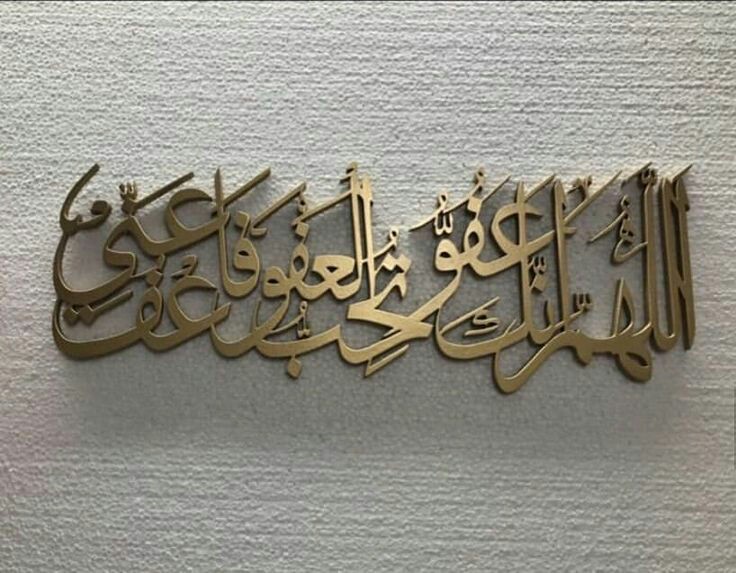 اللَّهُمَّ إنَّكَ عَفُوٌّ تُحِبُّ العَفْوَ فَاعْفُ عَنِّي